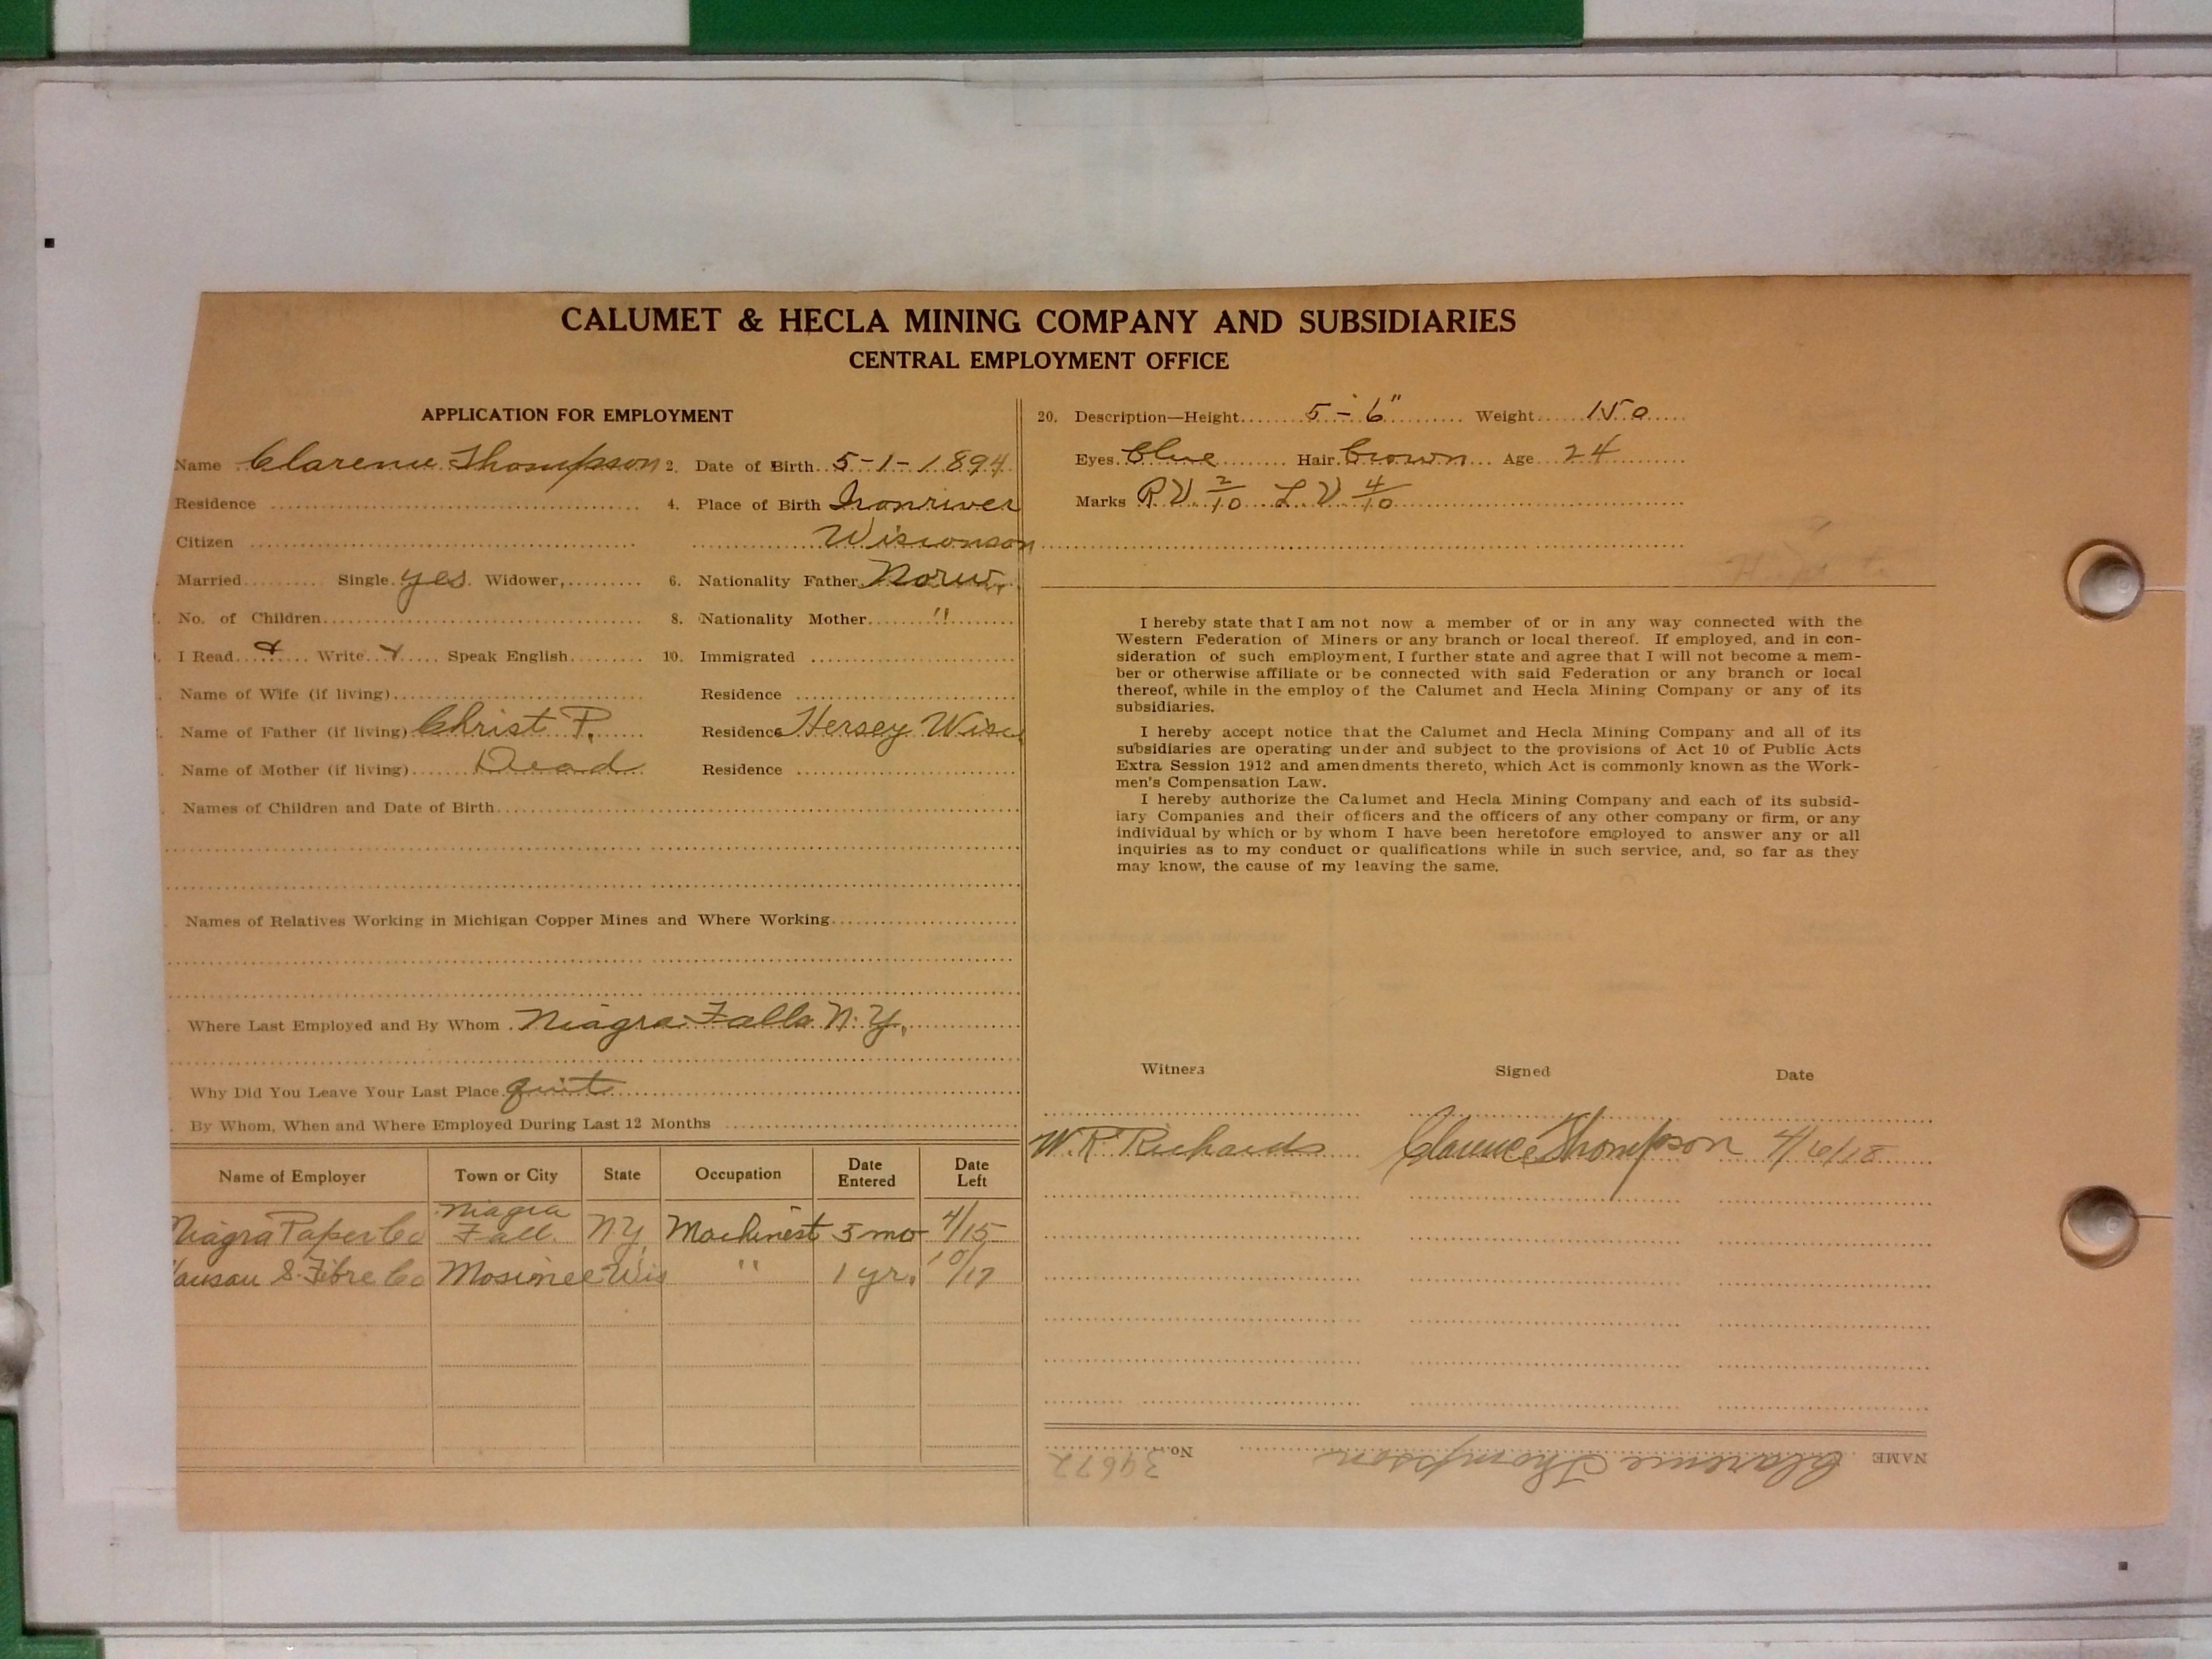 CALUMET & HECLA MINING COMPANY AND SUBSIDIARIES
CENTRAL EMPLOYMENT OFFICE
APPLICATION FOR EMPLOYMENT
Name Clarence Thompson 2. Date of Birth 5-1-1894
Residence 4. Place of Birth Ironriver
Citizen Wisconson
Married Single yes Widower, 6. Nationality Father Norw.
No. of Children 8. Nationality Mother "
I Read Write Speak English 10. Immigrated
Name of Wife (if living) Residence
Name of Father (if living) Christ P. Residence Hersey Wisc
Name of Mother (if living) Dead Residence
Names of Children and Date of Birth
Names of Relatives Working in Michigan Copper Mines and Where Working
Where Last Employed and By Whom Niagra Falls N.Y.
Why Did You Leave Your Last Place quit
By Whom, When and Where Employed During Last 12 Months
Name of Employer Town or City State Occupation Date Entered Date Left
Niagra Paper Co Niagra Fall N.Y. Machinest 5 mo 4/15
ausau S. Fibre Co Mosinee Wis " 1 yr. 10/17
20. Description—Height 5-6" Weight 150
Eyes blue Hair brown Age 24
Marks R.V. 2/10 L.V. 4/10
I hereby state that I am not now a member of or in any way connected with the
Western Federation of Miners or any branch or local thereof. If employed, and in con-
sideration of such employment, I further state and agree that I will not become a mem-
ber or otherwise affiliate or be connected with said Federation or any branch or local
thereof, while in the employ of the Calumet and Hecla Mining Company or any of its
subsidiaries.
I hereby accept notice that the Calumet and Hecla Mining Company and all of its
subsidiaries are operating under and subject to the provisions of Act 10 of Public Acts
Extra Session 1912 and amendments thereto, which Act is commonly known as the Work-
men's Compensation Law.
I hereby authorize the Calumet and Hecla Mining Company and each of its subsid-
iary Companies and their officers and the officers of any other company or firm, or any
individual by which or by whom I have been heretofore employed to answer any or all
inquiries as to my conduct or qualifications while in such service, and, so far as they
may know, the cause of my leaving the same.
Witness Signed Date
W.R. Richards Clarence Thompson 4/16/18
NAME Clarence Thompson No. 39672